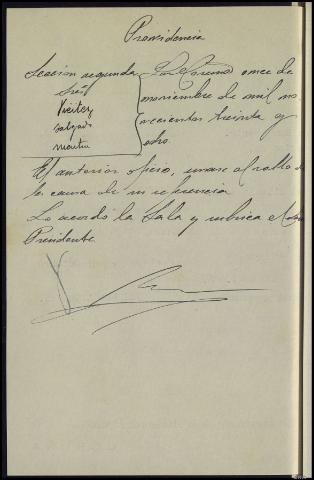 Providencia
Sección segunda
Sres
Vieitez
Salgado
Martin
La Coruña once de
noviembre de mil no-
vecientos treinta y
ocho
El anterior oficio, unase al rollo de
la causa de su referencia
Lo acordo la Sala y rubrica el
Presidente.